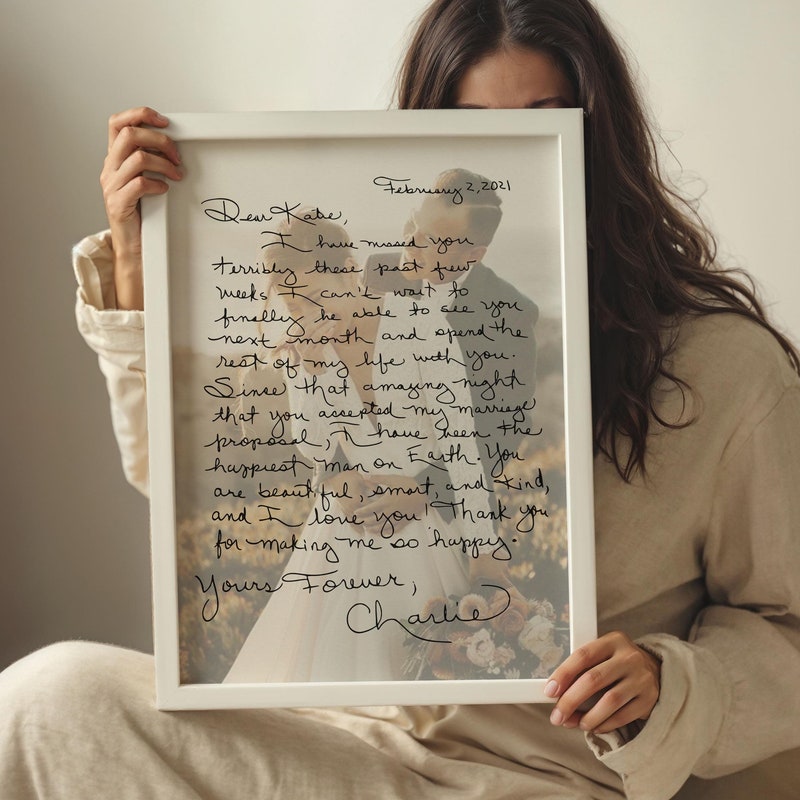 February 2, 2021
Dear Katie,
I have missed you
terribly these past few
weeks I can't wait to
finally be able to see you
next month and spend the
rest of my life with you.
Since that amazing night
that you accepted my marriage
proposal, I have been the
happiest man on Earth. You
are beautiful, smart, and kind,
and I love you! Thank you
for making me so happy.
Yours Forever,
Charlie